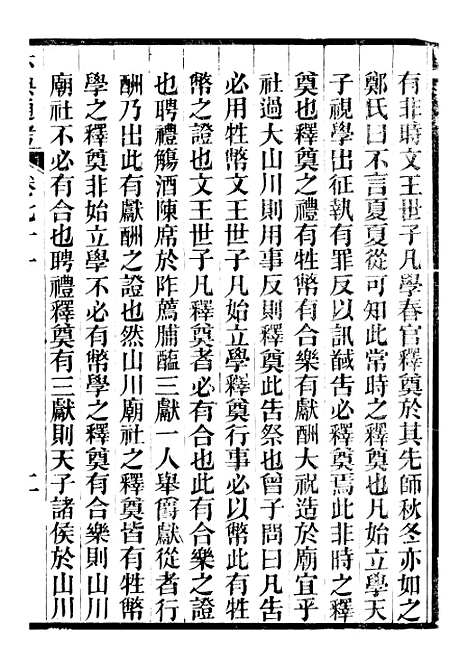 有非時文王世子凡學春官釋奠於其先師秋冬亦如之
鄭氏曰不言夏夏從可知此常時之釋奠也凡始立學天
子視學出征執有罪反以訊馘告必釋奠焉此非時之釋
奠也釋奠之禮有牲幣有合樂有獻酬大祝造於廟宜乎
社過大山川則用事反則釋奠此告祭也曾子問曰凡告
必用牲幣文王世子凡始立學釋奠行事必以幣此有牲
幣之證也文王世子凡釋奠者必有合也此有合樂之證
也聘禮觴酒陳席於阼薦脯醢三獻一人舉爵獻從者行
酬乃出此有獻酬之證也然山川廟社之釋奠皆有牲幣
學之釋奠非始立學不必有幣學之釋奠有合樂則山川
廟社不必有合也聘禮釋奠有三獻則天子諸侯於山川
六典通考
卷七十一